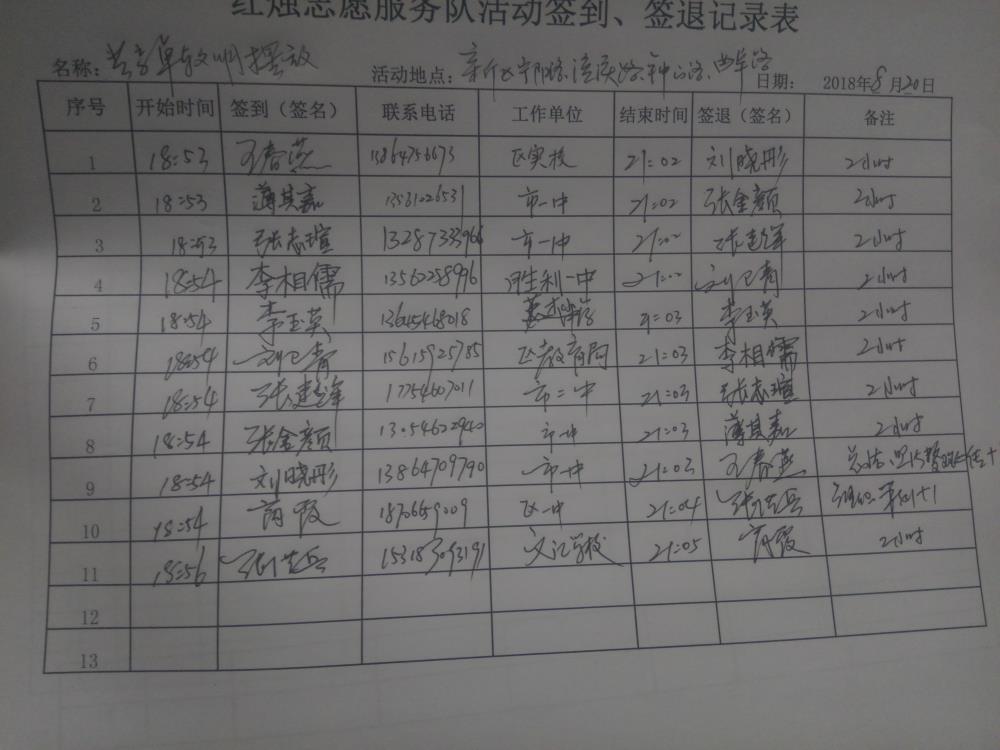 红烛志愿服务队活动签到、签退记录表
名称: 摆放 活动地点: 日期: 2018年8月20日
序号 开始时间 签到（签名） 联系电话 工作单位 结束时间 签退（签名） 备注
1 18:53 王春燕 13864756673 区实校 21:02 刘晓彤 2小时
2 18:53 薄其嘉 13561226531 市一中 21:02 张金颜 2小时
3 18:53 张志瑄 13287333966 市一中 21:02 张建锋 2小时
4 18:54 李相儒 13562258996 胜利一中 21:02 刘卫青 2小时
5 18:54 李玉英 13645468018 21:03 李玉英 2小时
6 18:54 刘卫青 15615925785 区教育局 21:03 李相儒 2小时
7 18:54 张建锋 17754607011 市二中 21:03 张志瑄 2小时
8 18:54 张金颜 13054622940 市一中 21:03 薄其嘉 2小时
9 18:54 刘晓彤 13864709790 市一中 21:03 王春燕
10 18:54 区一中 21:04
11 18:56 15318309319 21:05 2小时
12
13